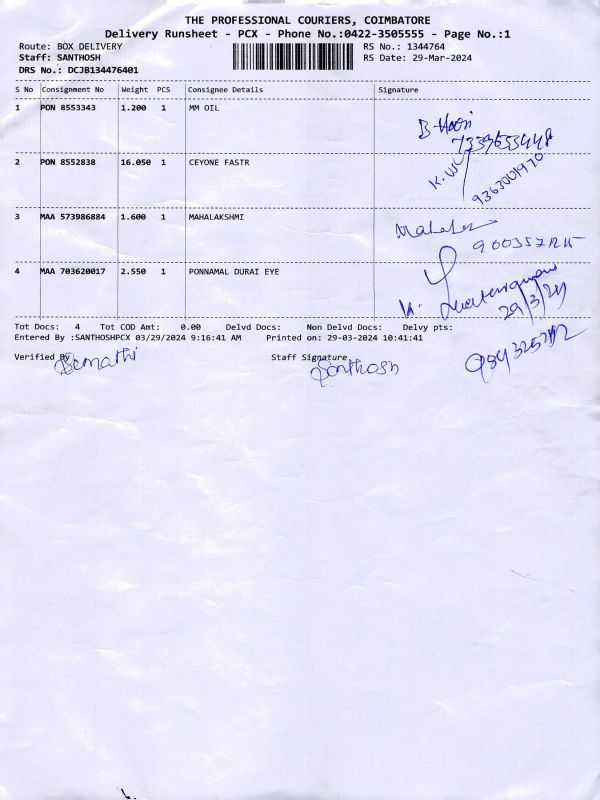 THE PROFESSIONAL COURIERS, COIMBATORE
Delivery Runsheet - PCX - Phone No.:0422-3505555 - Page No.:1
Route: BOX DELIVERY RS No.: 1344764
Staff: SANTHOSH RS Date: 29-Mar-2024
DRS No.: DCJB134476401
S No Consignment No Weight PCS Consignee Details Signature
1 PON 8553343 1.200 1 MM OIL
2 PON 8552838 16.050 1 CEYONE FASTR
9363001970
3 MAA 573986884 1.600 1 MAHALAKSHMI
4 MAA 703620017 2.550 1 PONNAMAL DURAI EYE
29/3/24
Tot Docs: 4 Tot COD Amt: 0.00 Delvd Docs: Non Delvd Docs: Delvy pts:
Entered By :SANTHOSHPCX 03/29/2024 9:16:41 AM Printed on: 29-03-2024 10:41:41
Verified By Staff Signature
Santhosh